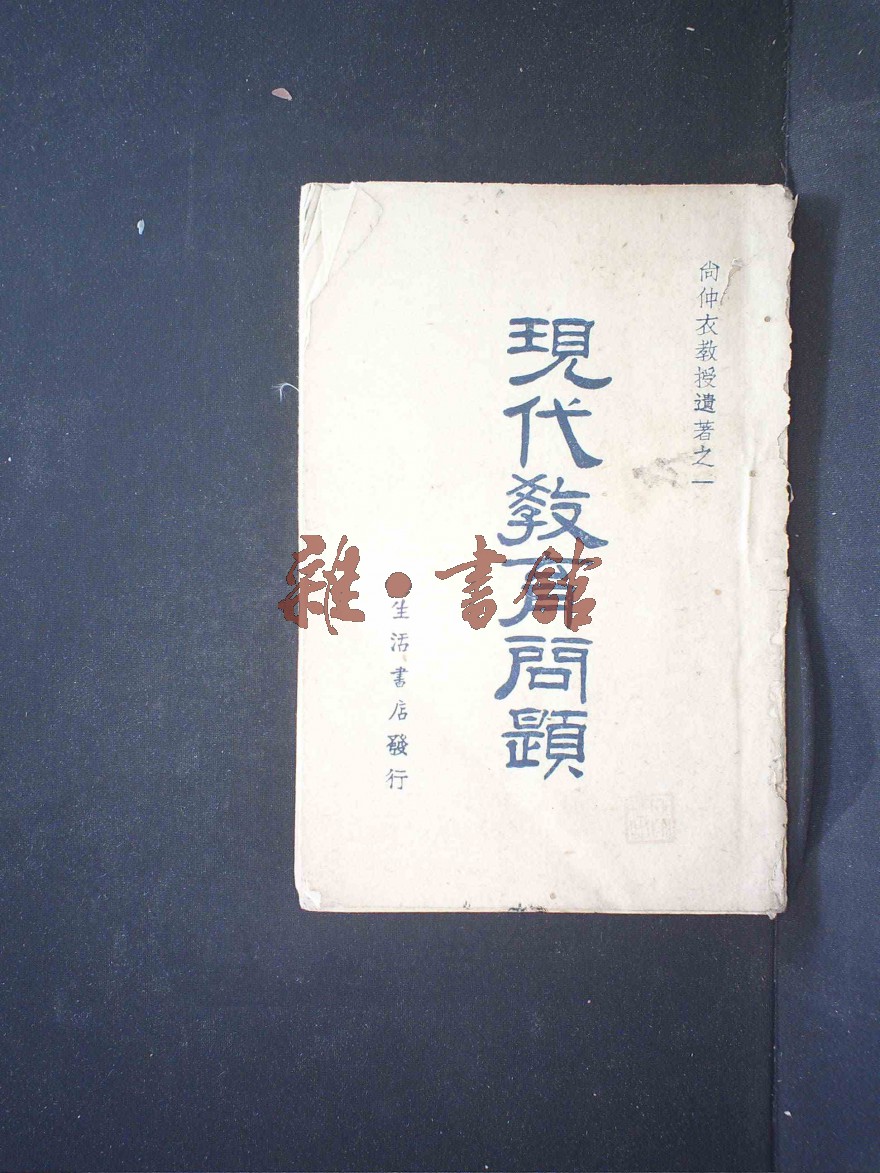 尙仲衣教授遺著之一
現代教育問題
生活書店發行
雜·書館